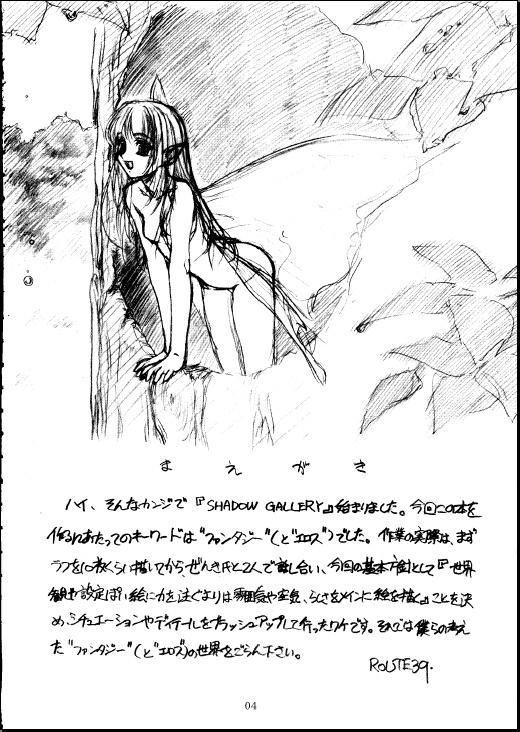 まえがき
ハイ、そんなカンジで『SHADOW GALLERY』始まりました。今回この本を
作るにあたってのキーワードは"ファンタジー"(と"エロス")でした。作業の実際は、まず
ラフを10枚くらい描いてから、ぜんき氏と2人で話し合い、今回の基本方針として『世界
観や設定ぽい絵に力を注ぐよりは雰囲気や空気、らしさをメインに絵を描く』ことを決
め、シチュエーションやディテールをブラッシュアップして行ったワケです。それでは僕らの考え
た"ファンタジー"(と"エロス")の世界をごらん下さい。
ROUTE39.
04